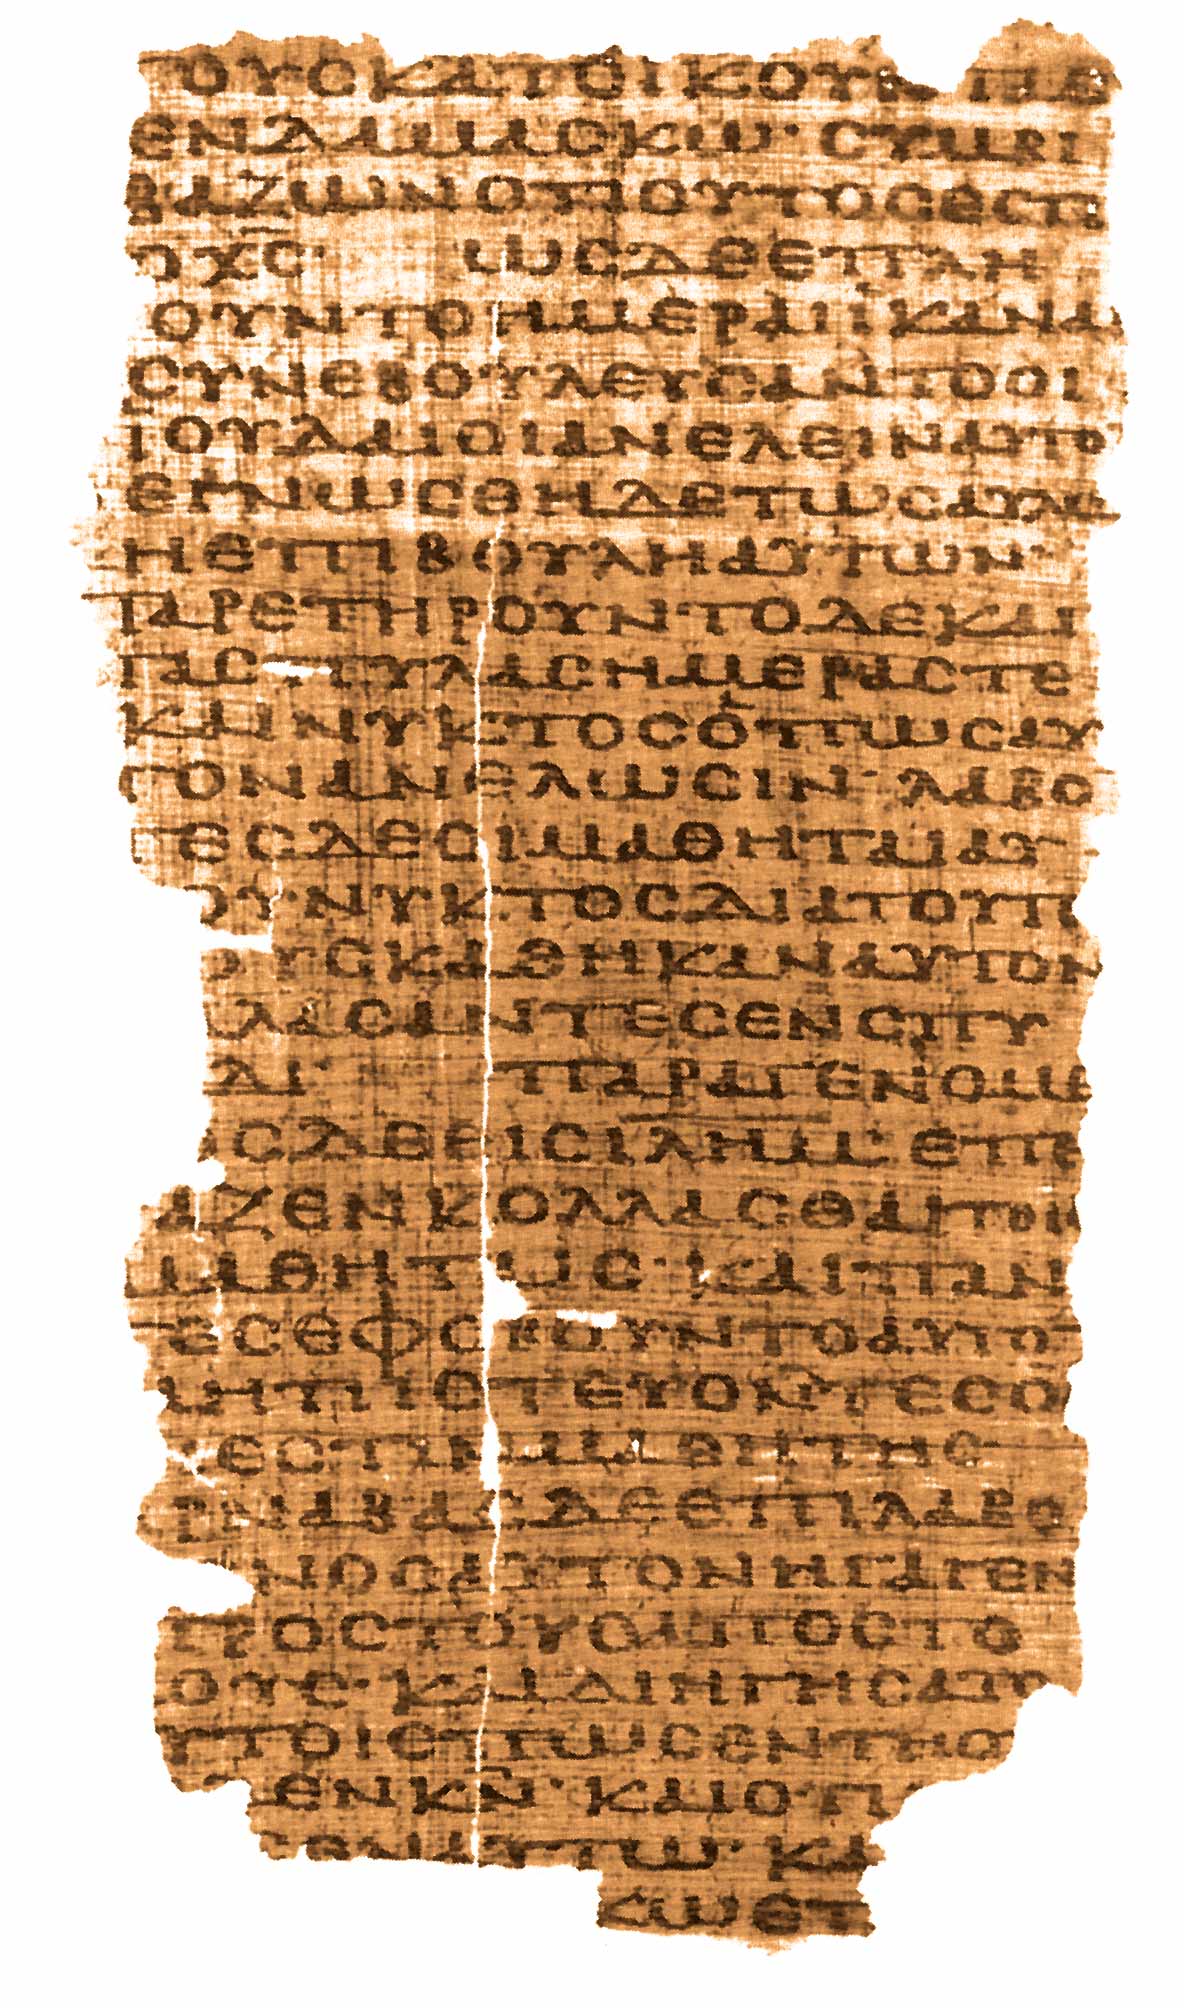 ΤΟΥΣΚΑΤΟΙΚΟΥΝ ΠΕ
ΕΝΔΑΜΑΣΚΩ· ΣΥΜΒΙ
ΒΑΖΩΝΟΤΙΟΥΤΟΣΕΣΤΙ
ΟΧΣ· ΩΣΔΕΕΠΛΗ
ΟΥΝΤΟΗΜΕΡΑΙΙΚΑΝΑΙ
ΣΥΝΕΒΟΥΛΕΥΣΑΝΤΟΟΙ
ΙΟΥΔΑΙΟΙΑΝΕΛΕΙΝΑΥΤΟ
ΕΓΝΩΣΘΗΔΕΤΩΣΑΥΛΩ
ΗΕΠΙΒΟΥΛΗΑΥΤΩΝ·
ΠΑΡΕΤΗΡΟΥΝΤΟΔΕΚΑΙ
ΤΑΣΠΥΛΑΣΗΜΕΡΑΣΤΕ
ΚΑΙΝΥΚΤΟΣΟΠΩΣΑΥ
ΤΟΝΑΝΕΛΩΣΙΝ· ΛΑΒΟ
ΤΕΣΔΕΟΙΜΑΘΗΤΑΙΑΥ
ΟΥΝΥΚΤΟΣΔΙΑΤΟΥΤ
ΟΥΣΚΑΘΗΚΑΝΑΥΤΟΝ
ΑΛΑΣΑΝΤΕΣΕΝΣΠΥ
ΔΙ· ΠΑΡΑΓΕΝΟΜΕ
ΟΣΔΕΕΙΣΙΛΗΜ· ΕΠΕ
ΑΖΕΝΚΟΛΛΑΣΘΑΙΤΟΙ
ΜΑΘΗΤΑΙΣ· ΚΑΙΠΑΝ
ΤΕΣΕΦΟΒΟΥΝΤΟΑΥΤΟ
ΜΗΠΙΣΤΕΥΟΝΤΕΣΟ
ΕΣΤΙΝΜΑΘΗΤΗΣ
ΑΡΝΑΒΑΣΔΕΕΠΙΛΑΒΟ
ΕΝΟΣΑΥΤΟΝΗΓΑΓΕΝ
ΠΡΟΣΤΟΥΣΑΠΟΣΤΟ
ΟΥΣ· ΚΑΙΔΙΗΓΗΣΑΤΟ
ΥΤΟΙΣΠΩΣΕΝΤΗΟ
ΔΕΝΚΝ· ΚΑΙΟΤΙ
ΣΕΝΑΥΤΩ· ΚΑ
ΣΩΣΕΠ